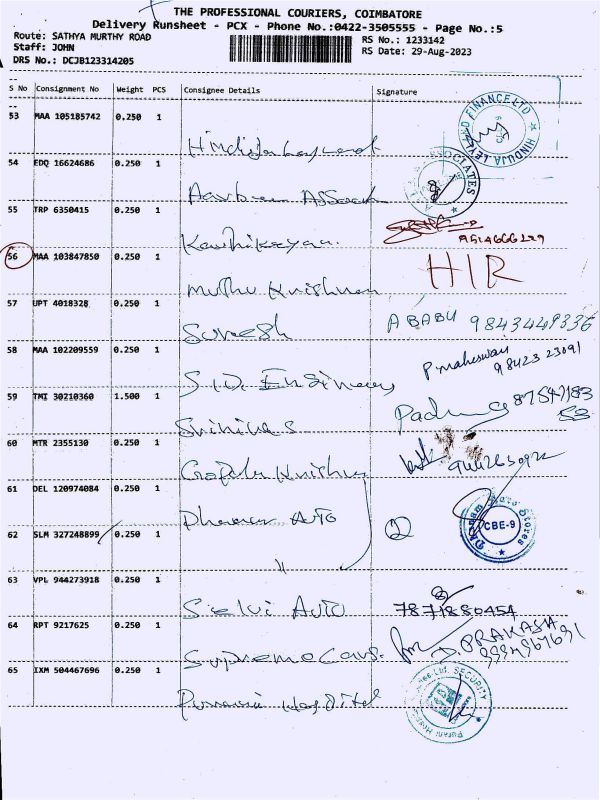 THE PROFESSIONAL COURIERS, COIMBATORE
Delivery Runsheet - PCX - Phone No.:0422-3505555 - Page No.:5
Route: SATHYA MURTHY ROAD
RS No.: 1233142
Staff: JOHN
RS Date: 29-Aug-2023
DRS No.: DCJB123314205
S No Consignment No Weight PCS Consignee Details Signature
53 MAA 105185742 0.250 1
HINDUJA LEYLAND FINANCE LTD
54 EDQ 16624686 0.250 1
55 TRP 6350415 0.250 1
Karthikeyan.
56 MAA 103847850 0.250 1
HIR
Muthu Krishnan
57 UPT 4018328 0.250 1
Suresh A BABU 9843449336
58 MAA 102209559 0.250 1
P. maheswari
98423 23091
S.D. Engineers
59 TMI 30210360 1.500 1
Srinivas
60 MTR 2355130 0.250 1
Gopala Krishna
61 DEL 120974084 0.250 1
Dhanam Auto
2
Dhanam Auto Stores
CBE-9
62 SLM 327248899 0.250 1
63 VPL 944273918 0.250 1
Selvi Auto 7871880454
64 RPT 9217625 0.250 1
D. PRAKASH
Supreme
65 IXM 504467696 0.250 1
SECURITY
Hospital